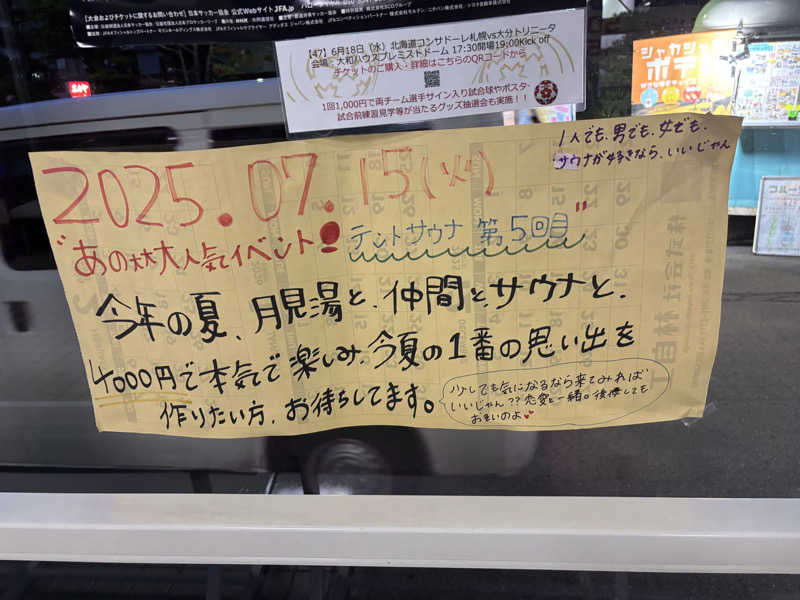 【大会およびチケットに関するお問い合わせ】日本サッカー協会 公式WebサイトJFA.jp
【47】6月18日（水）北海道コンサドーレ札幌vs大分トリニータ
会場：大和ハウスプレミストドーム 17:30開場19:00Kick off
チケットのご購入・詳細はこちらのQRコードから
1回1,000円で両チーム選手サイン入り試合球やポスター
試合前練習見学等が当たるグッズ抽選会も実施！！
シャカシャカ
ポテ
1人でも、男でも、女でも、
サウナが好きなら、いいじゃん
2025.07.15(火)
"あの大大大人気イベント!テントサウナ 第5回目"
今年の夏、月見湯と、仲間と、サウナと、
4000円で本気で楽しみ、今夏の1番の思い出を
作りたい方、お待ちしてます。
少しでも気になるなら来てみれば
いいじゃん??恋愛と一緒。後悔しても
おそいのよ♥